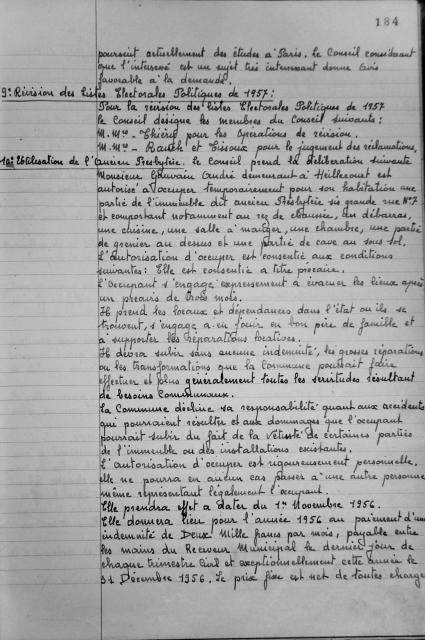 184
poursuit actuellement des études à Paris. Le Conseil considérant
que l'intéressé est un sujet très intéressant donne avis
favorable à la demande.
9º Révision des listes Electorales Politiques de 1957 :
Pour la révision des listes Electorales Politiques de 1957
le Conseil désigne les membres du Conseil suivants :
M.M.rs - Thiéry pour les opérations de révision.
M.M.rs - Rauch et Cisoux pour le jugement des réclamations,
10º Utilisation de l'ancien Presbytère. Le Conseil prend la délibération suivante
Monsieur Gauvain André demeurant à Heillecourt est
autorisé à occuper temporairement pour son habitation une
partie de l'immeuble dit ancien Presbytère sis grande rue Nº7
et comportant notamment au rez de chaussée, un débarras,
une cuisine, une salle à manger, une chambre, une partie
de grenier au dessus et une partie de cave au sous sol.
L'autorisation d'occuper est consentie aux conditions
suivantes : Elle est consentie à titre précaire.
L'occupant s'engage expressément à évacuer les lieux après
un préavis de trois mois.
Il prend les locaux et dépendances dans l'état où ils se
trouvent, s'engage à en jouir en bon père de famille et
à supporter les réparations locatives.
Il devra subir sans aucune indemnité, les grosses réparations
ou les transformations que la Commune pourrait faire
effectuer et plus généralement toutes les servitudes résultant
de besoins Communaux.
La Commune décline sa responsabilité quant aux accidents
qui pourraient résulter et aux dommages que l'occupant
pourrait subir du fait de la vétusté de certaines parties
de l'immeuble ou des installations existantes.
L'autorisation d'occuper est rigoureusement personnelle,
elle ne pourra en aucun cas passer à une autre personne
même représentant légalement l'occupant.
Elle prendra effet à dater du 1er Novembre 1956.
Elle donnera lieu pour l'année 1956 au paiement d'une
indemnité de Deux Mille francs par mois, payable entre
les mains du Receveur Municipal le dernier jour de
chaque trimestre Civil et exceptionnellement cette année le
31 Décembre 1956. Le prix fixé est net de toutes charges